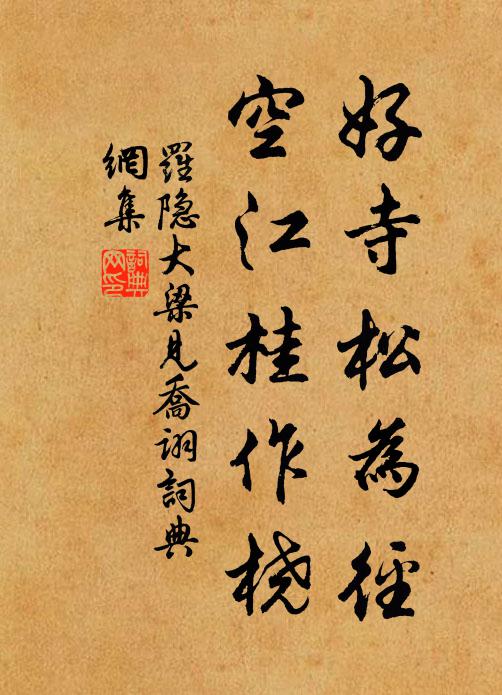 好寺松為徑
空江桂作橈
羅隐大梁見喬詡詞典
網集
詞典
网印